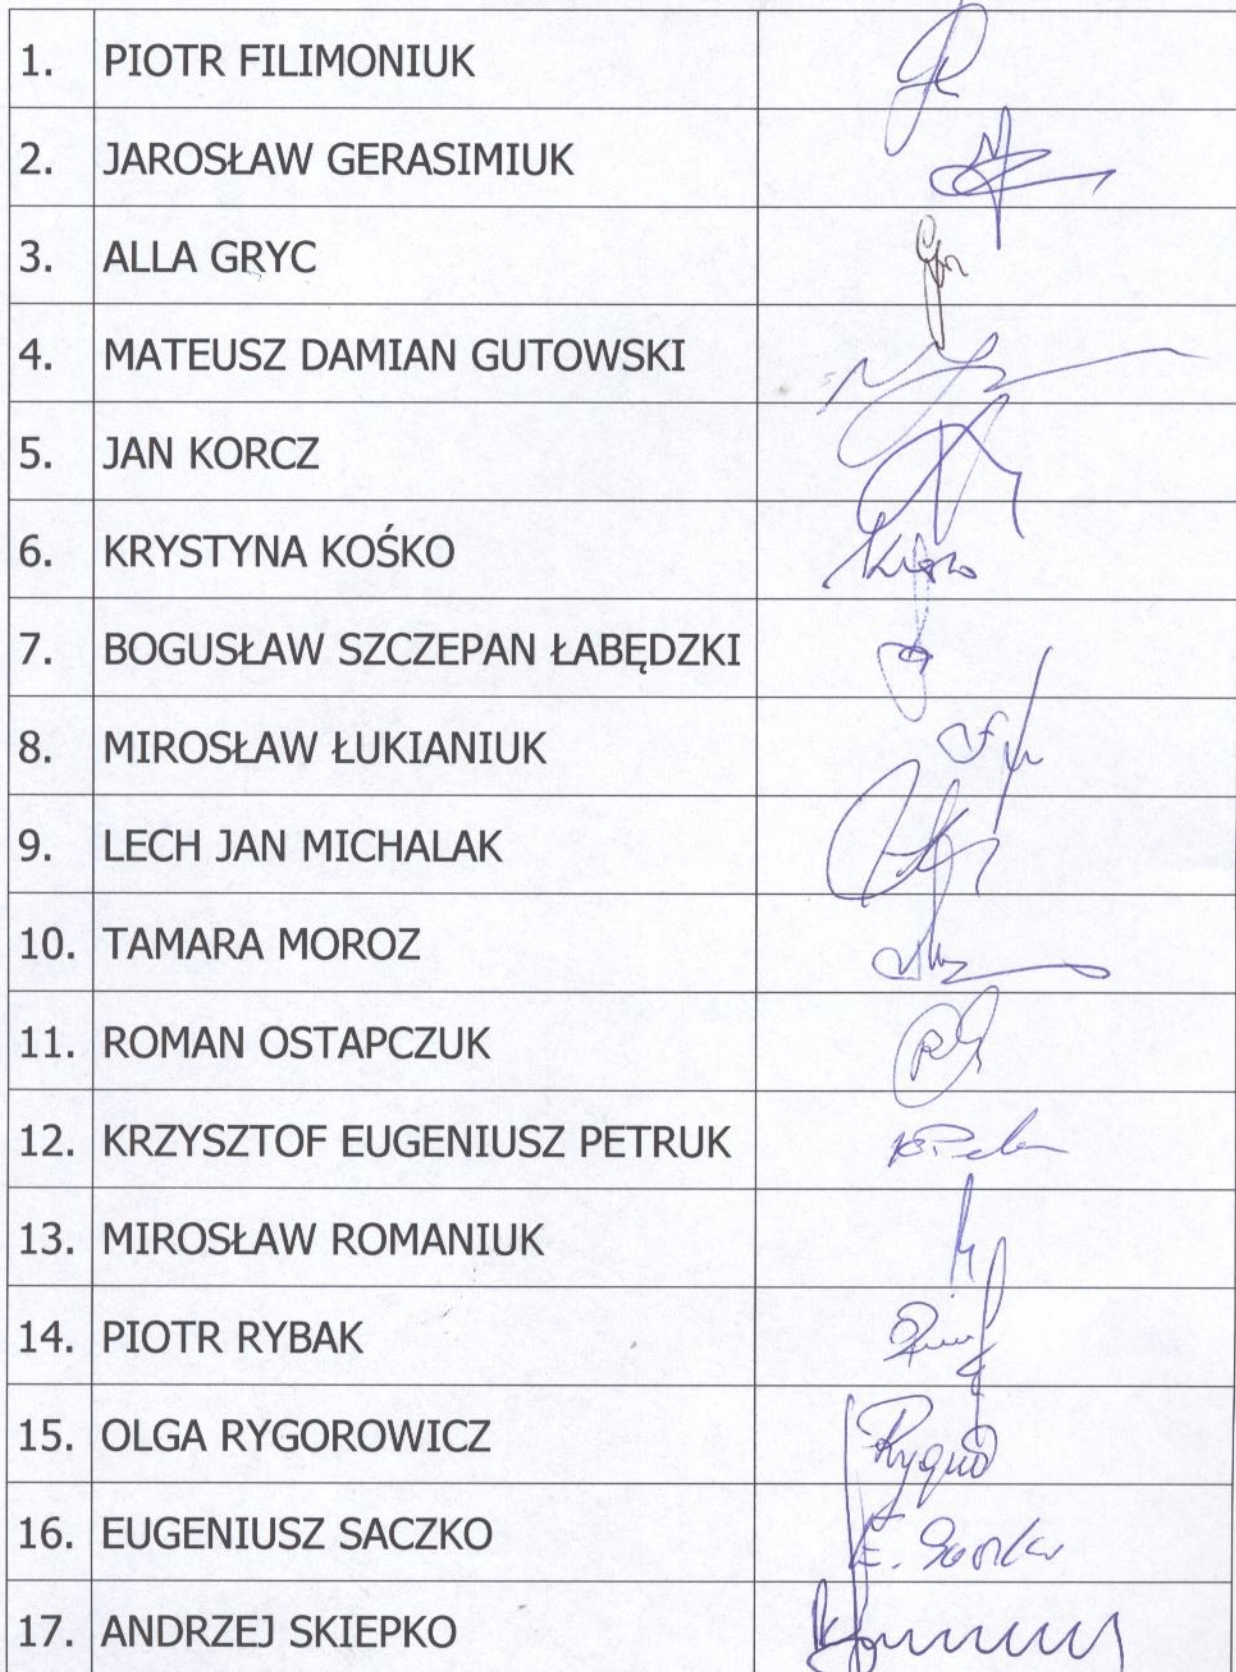 1. PIOTR FILIMONIUK
2. JAROSŁAW GERASIMIUK
3. ALLA GRYC
4. MATEUSZ DAMIAN GUTOWSKI
5. JAN KORCZ
6. KRYSTYNA KOŚKO
7. BOGUSŁAW SZCZEPAN ŁABĘDZKI
8. MIROSŁAW ŁUKIANIUK
9. LECH JAN MICHALAK
10. TAMARA MOROZ
11. ROMAN OSTAPCZUK
12. KRZYSZTOF EUGENIUSZ PETRUK
13. MIROSŁAW ROMANIUK
14. PIOTR RYBAK
15. OLGA RYGOROWICZ
16. EUGENIUSZ SACZKO
17. ANDRZEJ SKIEPKO